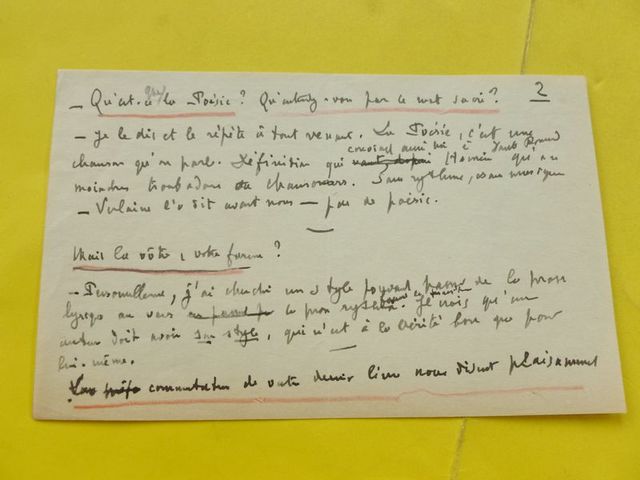 2
— Qu'est-ce que la Poésie? Qu'entendez-vous par ce mot sacré?
— Je le dis et le répète à tout venant. La Poésie, c'est une
chanson qu'on parle. Définition qui convient aussi bien à
Homère qu'au
moindre troubadour chansons. Sans rythme, sans musique
— Verlaine l'a dit avant nous — pas de poésie.
Mais la vôtre, votre forme?
— Personnellement, j'ai cherché un style pouvant passer de la prose
lyrique au vers la prose. Je crois qu'un
auteur doit avoir son style, qui n'est à la vérité bon que pour
lui-même.
commentateur de votre dernier livre nous disent plaisamment